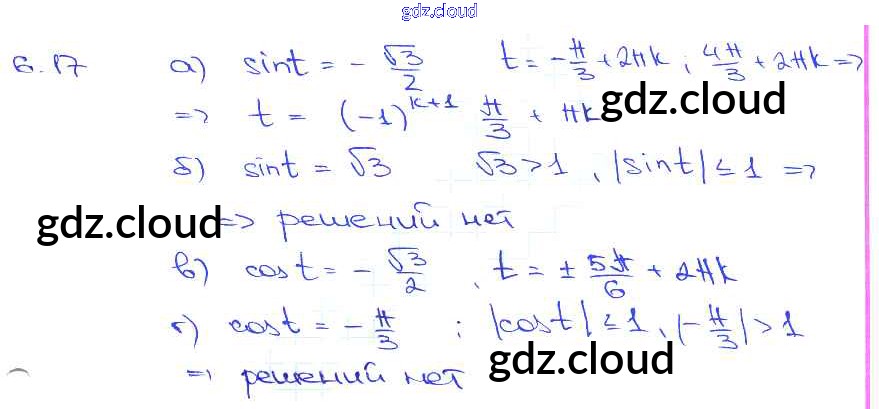 gdz.cloud
6.17 а) sin t = - √3/2 t = -π/3 + 2πk ; 4π/3 + 2πk =>
=> t = (-1)^(k+1) π/3 + πk gdz.cloud
б) sin t = √3 √3 > 1 , |sin t| ≤ 1 =>
gdz.cloud => решений нет
в) cos t = - √3/2 , t = ± 5π/6 + 2πk
г) cos t = - π/3 ; |cos t| ≤ 1 , |-π/3| > 1
gdz.cloud
=> решений нет